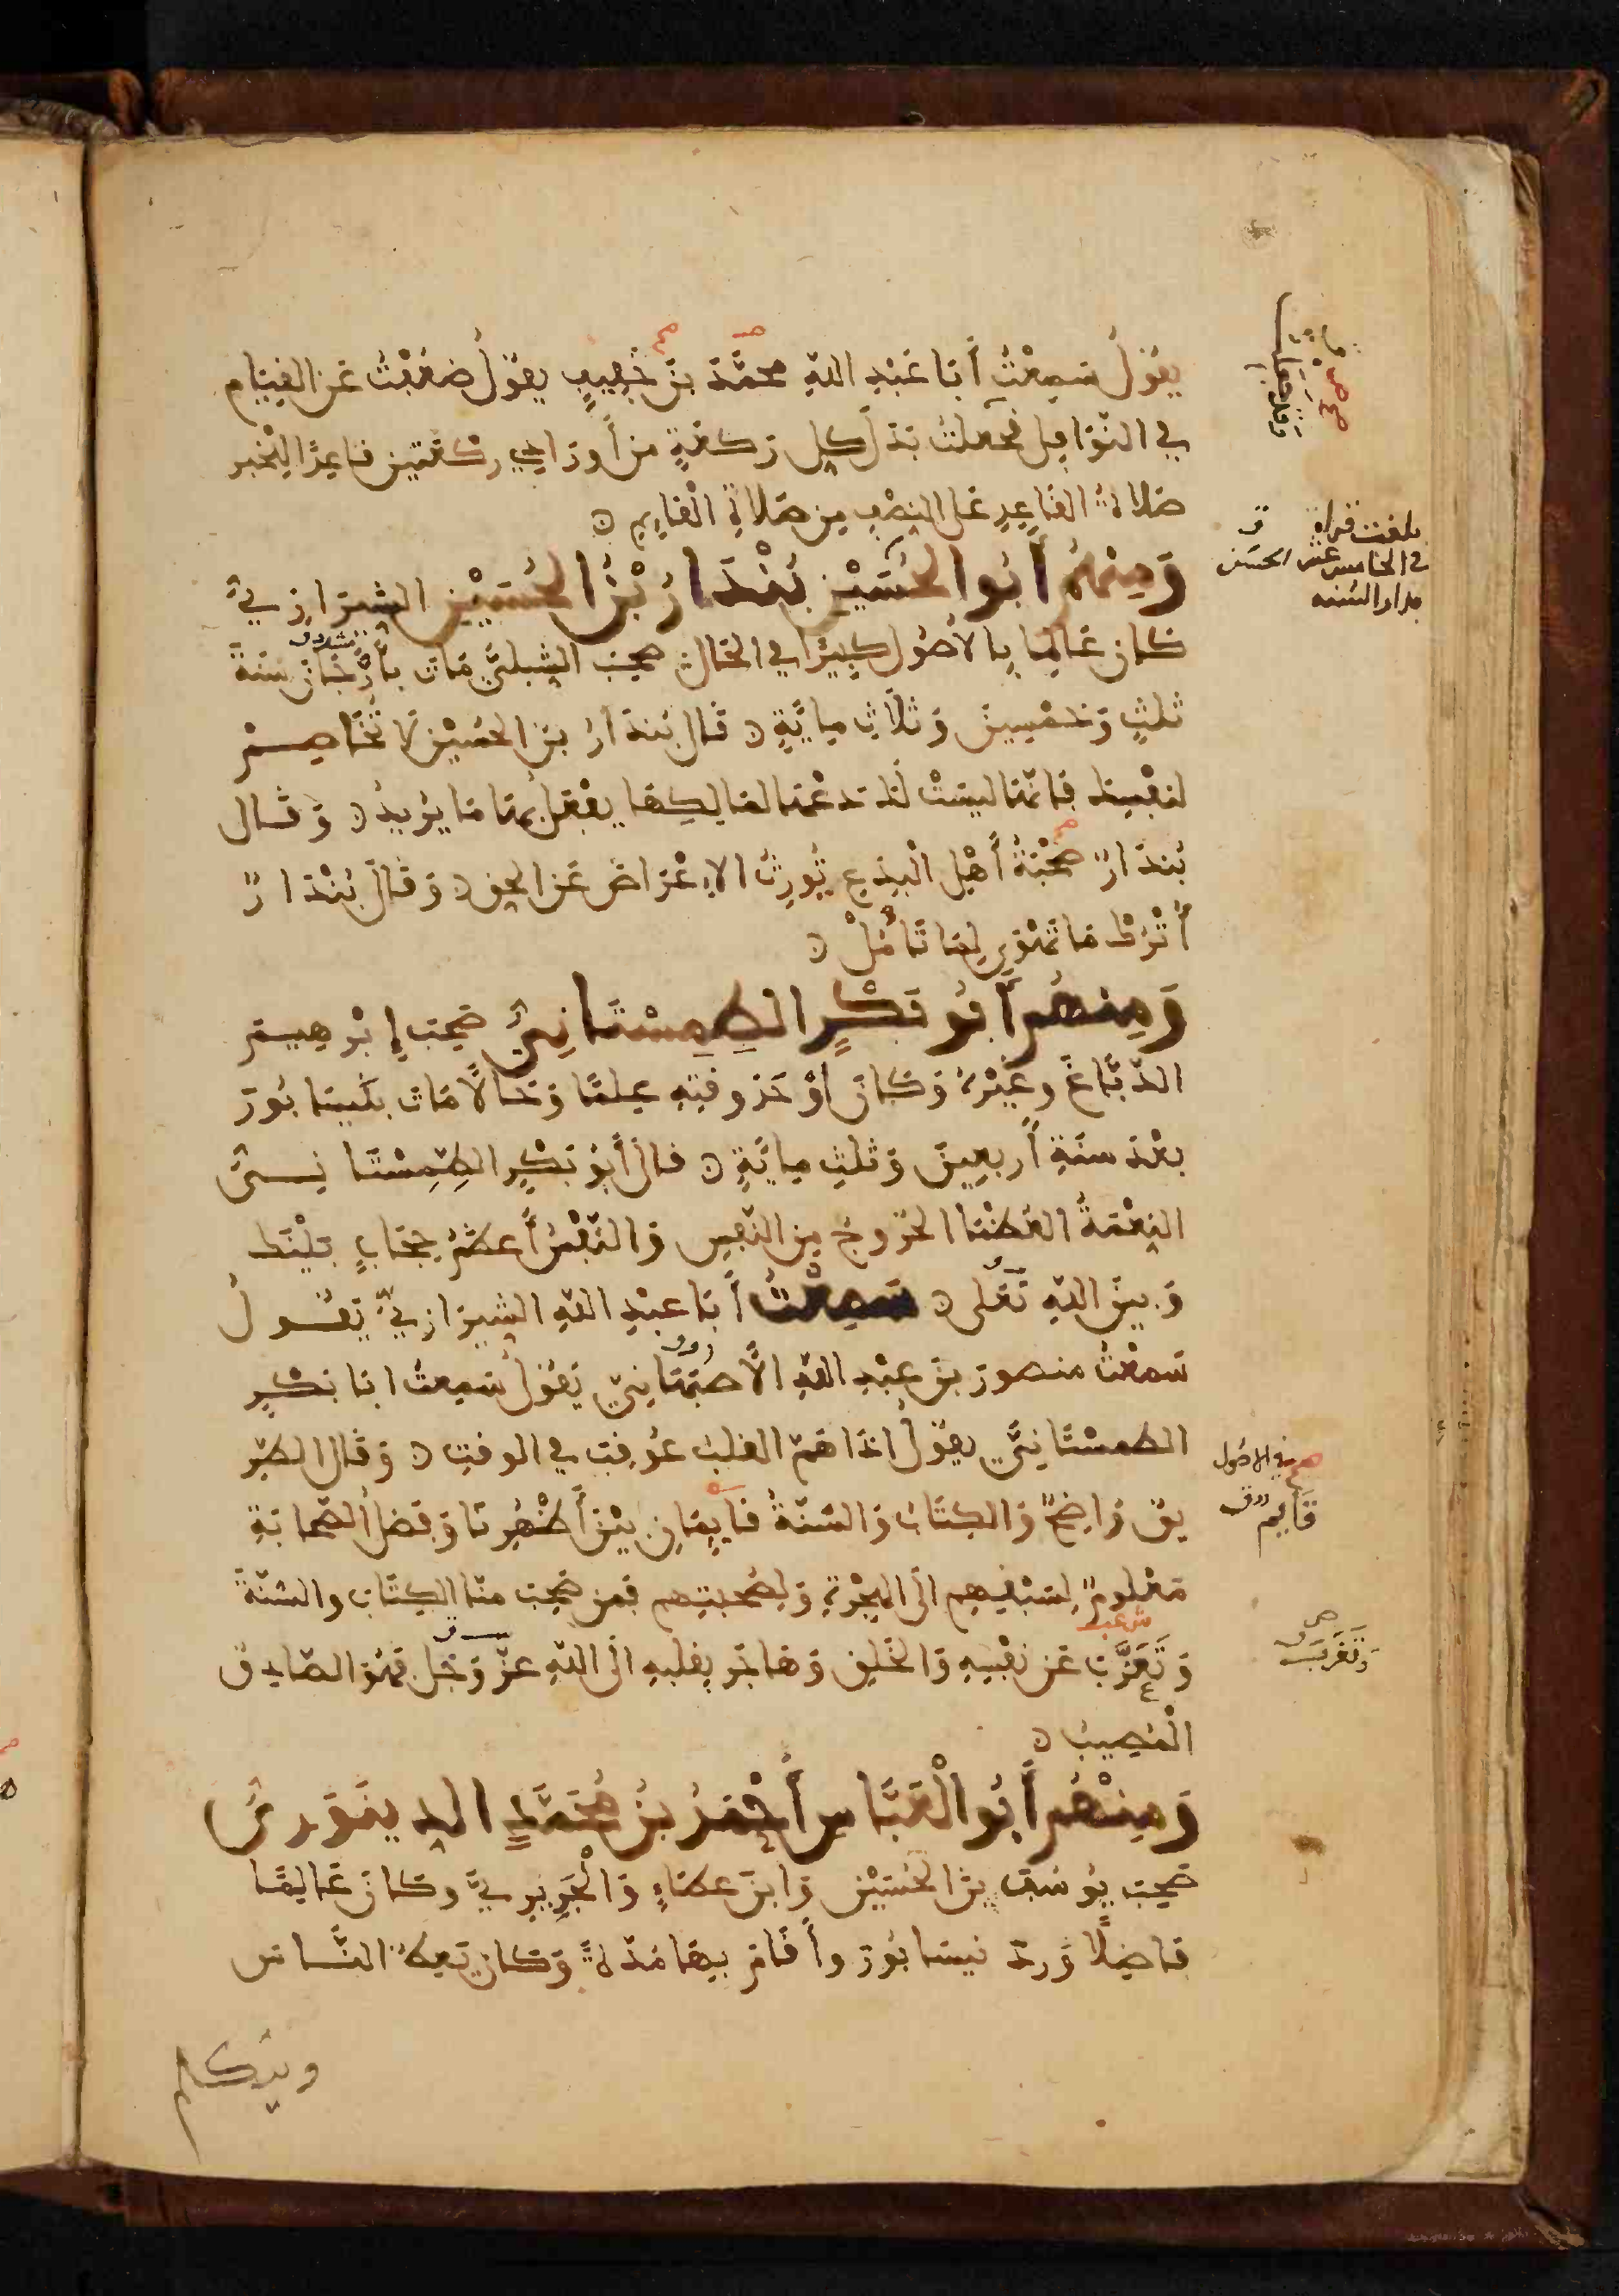 يَقُولُ سَمِعْتُ أَبَا عَبْدِ اللَّهِ مُحَمَّدَ بْنَ خَفِيفٍ يَقُولُ ضَعُفْتُ عَنِ الْقِيَامِ
فِي النَّوَافِلِ فَجَعَلْتُ بَدَلَ كُلِّ رَكْعَةٍ مِنْ أَوْرَادِي رَكْعَتَيْنِ قَاعِدًا لِلْخَبَرِ
صَلَاةُ الْقَاعِدِ عَلَى النِّصْفِ مِنْ صَلَاةِ الْقَائِمِ
وَمِنْهُمْ أَبُو الْحُسَيْنِ بُنْدَارُ بْنُ الْحُسَيْنِ الشِّيرَازِيُّ
كَانَ عَالِمًا بِالْأُصُولِ كَبِيرًا فِي الْحَالِ صَحِبَ الشِّبْلِيَّ مَاتَ بِأَرَّجَانَ سَنَةَ
ثَلَثٍ وَخَمْسِينَ وَثَلَاثِ مِايَةٍ قَالَ بُنْدَارُ بْنُ الْحُسَيْنِ لَا تُخَاصِمْ
لِنَفْسِكَ فَإِنَّهَا لَيْسَتْ لَكَ دَعْهَا لِمَالِكِهَا يَفْعَلُ بِهَا مَا يُرِيدُ وَقَالَ
بُنْدَارٌ صُحْبَةُ أَهْلِ الْبِدَعِ تُورِثُ الْإِعْرَاضَ عَنِ الْحَقِّ وَقَالَ بُنْدَارٌ
أُتْرُكْ مَا تَهْوَى لِمَا تَأْمُلُ
وَمِنْهُمْ أَبُو بَكْرٍ الطِّمِسْتَانِيُّ صَحِبَ إِبْرَهِيمَ
الدَّبَّاغَ وَغَيْرَهُ وَكَانَ أَوْحَدَ وَقْتِهِ عِلْمًا وَحَالًا مَاتَ بِنَيْسَابُورَ
بَعْدَ سَنَةِ أَرْبَعِينَ وَثَلَثِ مِايَةٍ قَالَ أَبُو بَكْرٍ الطِّمِسْتَانِيُّ
النِّعْمَةُ الْعُظْمَى الْخُرُوجُ مِنَ النَّفْسِ وَالنَّفْسُ أَعْظَمُ حِجَابٍ بَيْنَكَ
وَبَيْنَ اللَّهِ تَعَلَى سَمِعْتُ أَبَا عَبْدِ اللَّهِ الشِّيرَازِيَّ يَقُولُ
سَمِعْتُ مَنْصُورَ بْنَ عَبْدِ اللَّهِ الْأَصْبَهَانِيَّ يَقُولُ سَمِعْتُ أَبَا بَكْرٍ
الطمسْتَانِيَّ يَقُولُ إِذَا هَمَّ الْقَلْبُ عُوقِبَ فِي الْوَقْتِ وَقَالَ الطَّرِ
يقُ وَاضِحٌ وَالْكِتَابُ وَالسُّنَّةُ قَايِمَانِ بَيْنَ أَظْهُرِنَا وَفَضْلُ الصَّحَابَةِ
مَعْلُومٌ لِسَبْقِهِمْ إِلَى الْهِجْرَةِ وَلِصُحْبَتِهِمْ فَمَنْ صَحِبَ مِنَّا الْكِتَابَ وَالسُّنَّةَ
وَتَعَزَّبَ عَنْ نَفْسِهِ وَالْخَلْقِ وَهَاجَرَ بِقَلْبِهِ إِلَى اللَّهِ عَزَّ وَجَلَّ فَهُوَ الصَّادِقُ
الْمُصِيبُ
وَمِنْهُمْ أَبُو الْعَبَّاسِ أَحْمَدُ بْنُ مُحَمَّدٍ الدِّينَوَرِيُّ
صَحِبَ يُوسُفَ بْنَ الْحُسَيْنِ وَابْنَ عَطَاءٍ وَالْجَرِيرِيَّ وَكَانَ عَالِمًا
فَاضِلًا وَرَدَ نَيْسَابُورَ وَأَقَامَ بِهَا مُدَّةً وَكَانَ يَعِظُ النَّاسَ
ويتكلم
بلغت قراة
في الخامس عشر الحسن
في الاصول
قَايِم
وَتَغَرَّبَ